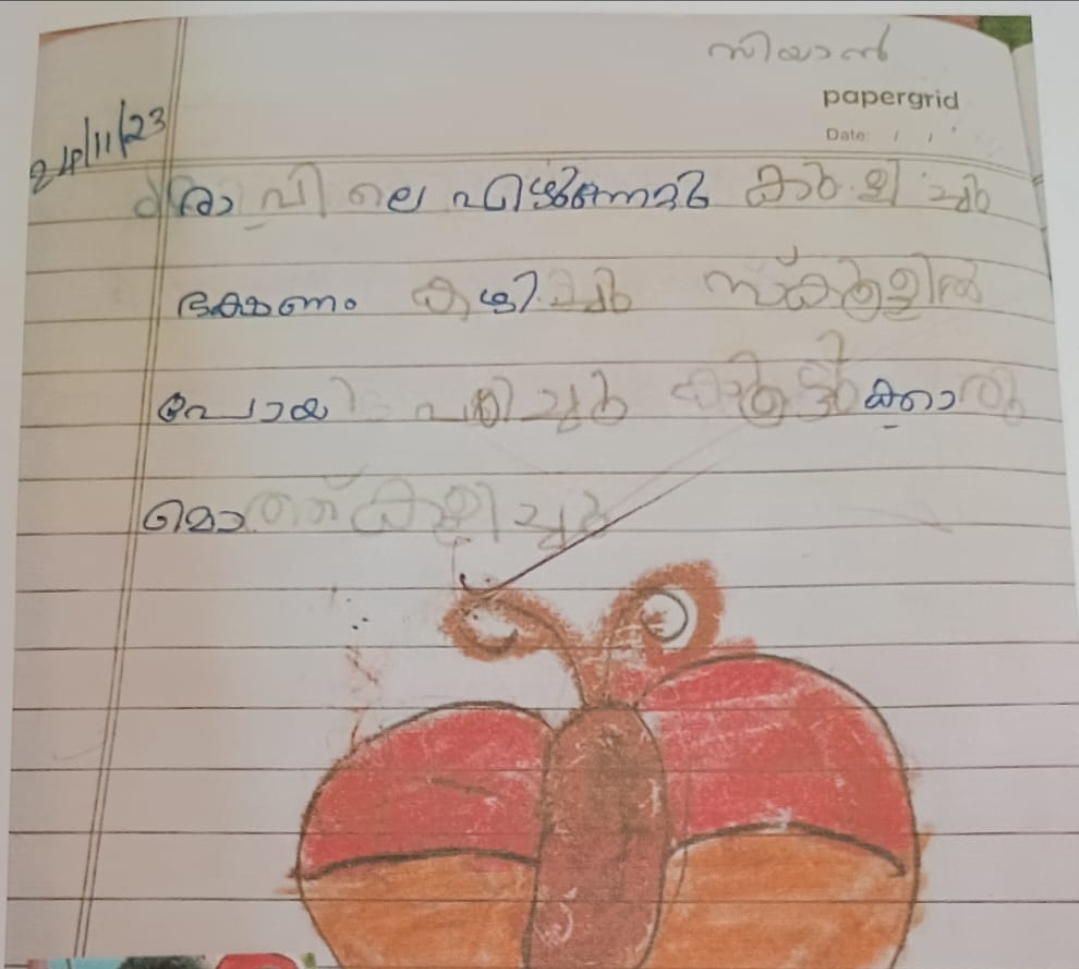 സിയാൻ
papergrid
Date: / /
24/11/23
രാവിലെ എഴുന്നേറ്റു കുളിച്ചു
ഭക്ഷണം കഴിച്ചു സ്കൂളിൽ
പോയി പഠിച്ചു കൂട്ടുക്കാരു
മൊത്ത് കളിച്ചു